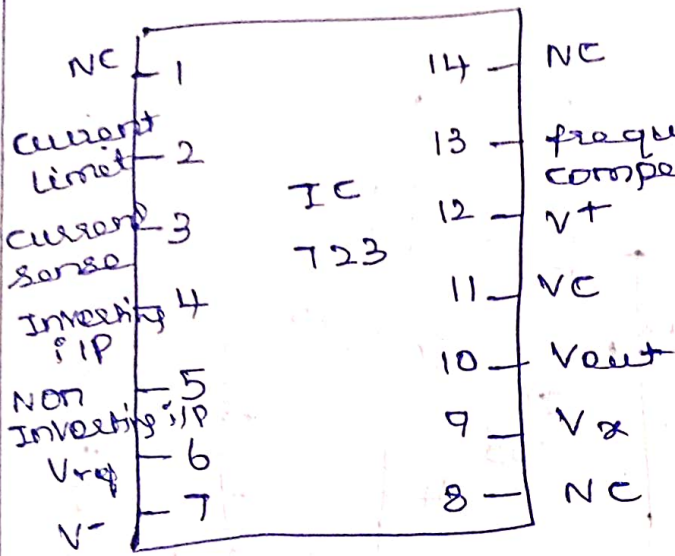 NC 1
Current
Limit 2
Current 3
Sense
Inverting 4
i/p
Non 5
Inverting i/p
Vref 6
V- 7
IC
723
14 NC
13 frequ
compe
12 V+
11 VC
10 Vout
9 Vz
8 NC